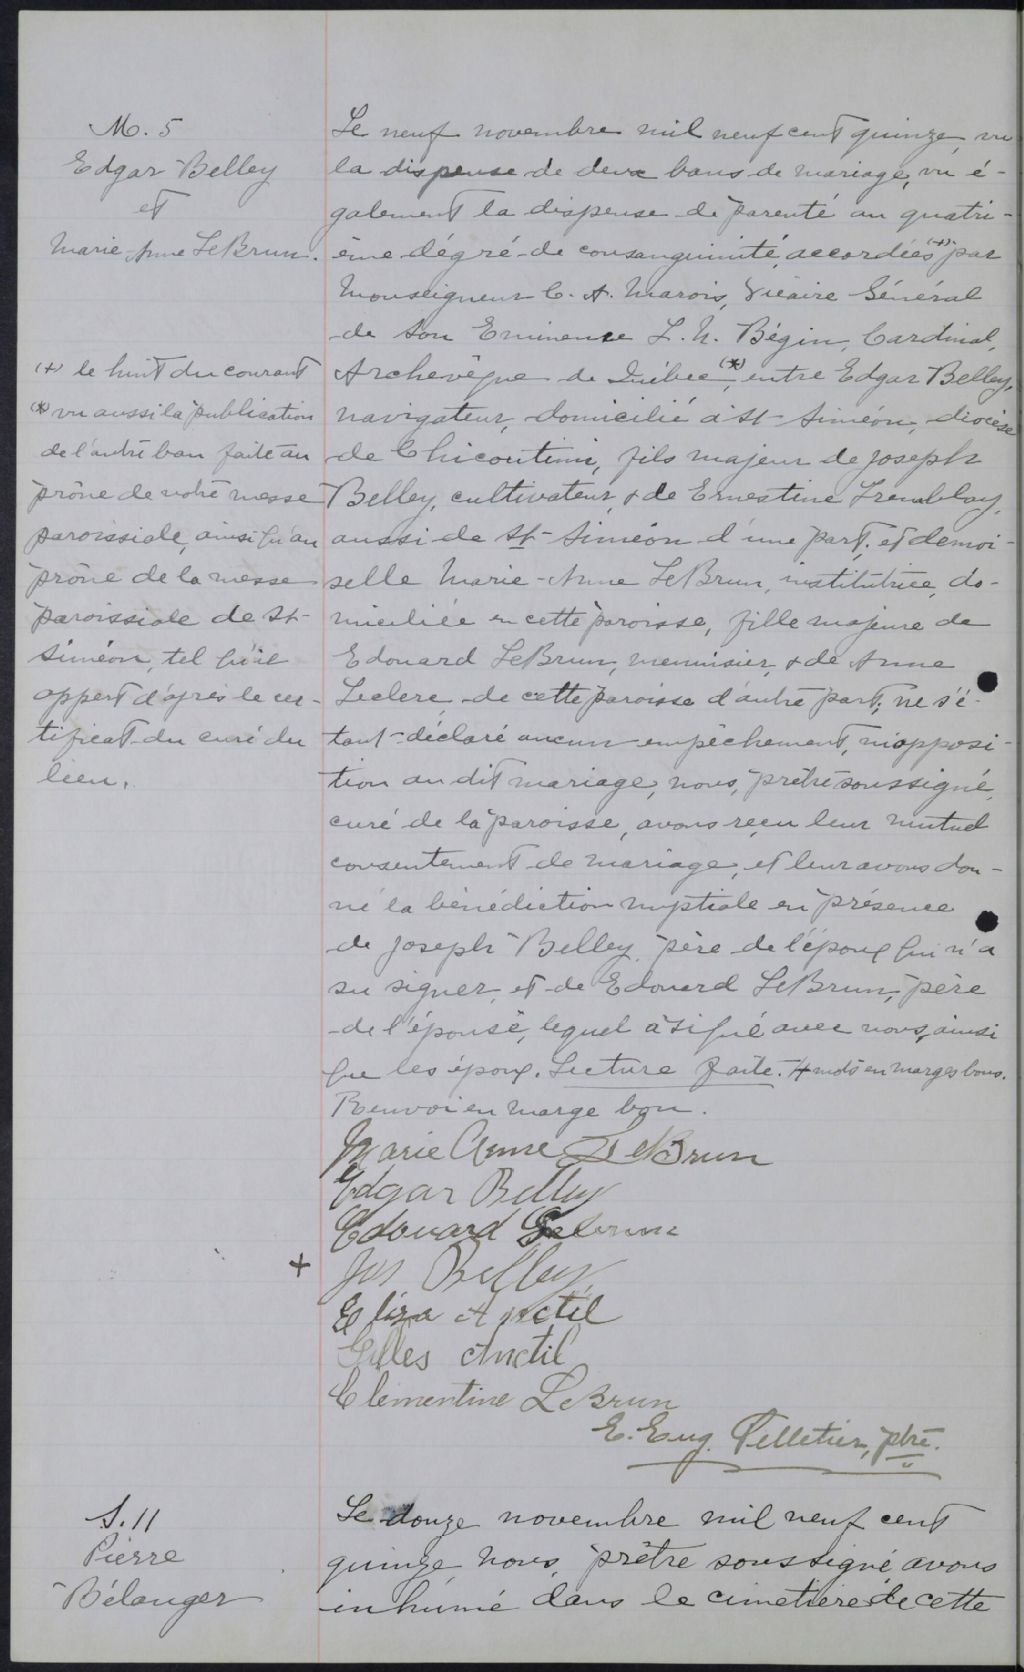 M. 5
Edgar Belley
et
Marie-Anne LeBrun.
(+) le huit du courant
(*) vu aussi la publication
de l'autre ban faite au
prône de notre messe
paroissiale, ainsi qu'au
prône de la messe
paroissiale de St-
Siméon, tel qu'il
appert d'après le cer-
tificat du curé du
lieu.
Le neuf novembre mil neuf cent quinze, vu
la dispense de deux bans de mariage, vu é-
galement la dispense de parenté au quatri-
ème dégré de consanguinité, accordées (+) par
Monseigneur C. A. Marois, Vicaire Général
de Son Eminence L. N. Bégin, Cardinal,
Archevêque de Québec (*), entre Edgar Belley,
navigateur, domicilié à St-Siméon, diocèse
de Chicoutimi, fils majeur de Joseph
Belley, cultivateur, & de Ernestine Tremblay,
aussi de St-Siméon d'une part; et demoi-
selle Marie-Anne LeBrun, institutrice, do-
miciliée en cette paroisse, fille majeure de
Edouard LeBrun, menuisier, & de Anna
Leclerc de cette paroisse d'autre part; ne s'é-
tant déclaré aucun empêchement, ni opposi-
tion au dit mariage, nous, prêtre soussigné,
curé de la paroisse, avons reçu leur mutuel
consentement de mariage, et leur avons don-
né la bénédiction nuptiale en présence
de Joseph Belley père de l'époux qui n'a
su signer, et de Edouard LeBrun, père
de l'épouse, lequel a signé avec nous, ainsi
que les époux. Lecture faite. 4 mots en marges bons.
Renvoi en marge bon.
Marie Anne LeBrun
Edgar Belley
Edouard Lebrun
+ Jos Belley
Eliza Anctil
Gilles Anctil
Clémentine LeBrun
E. Eug. Pelletier, ptre.
S. 11
Pierre
Bélanger
Le douze novembre mil neuf cent
quinze, nous, prêtre soussigné avons
inhumé dans le cimetière de cette